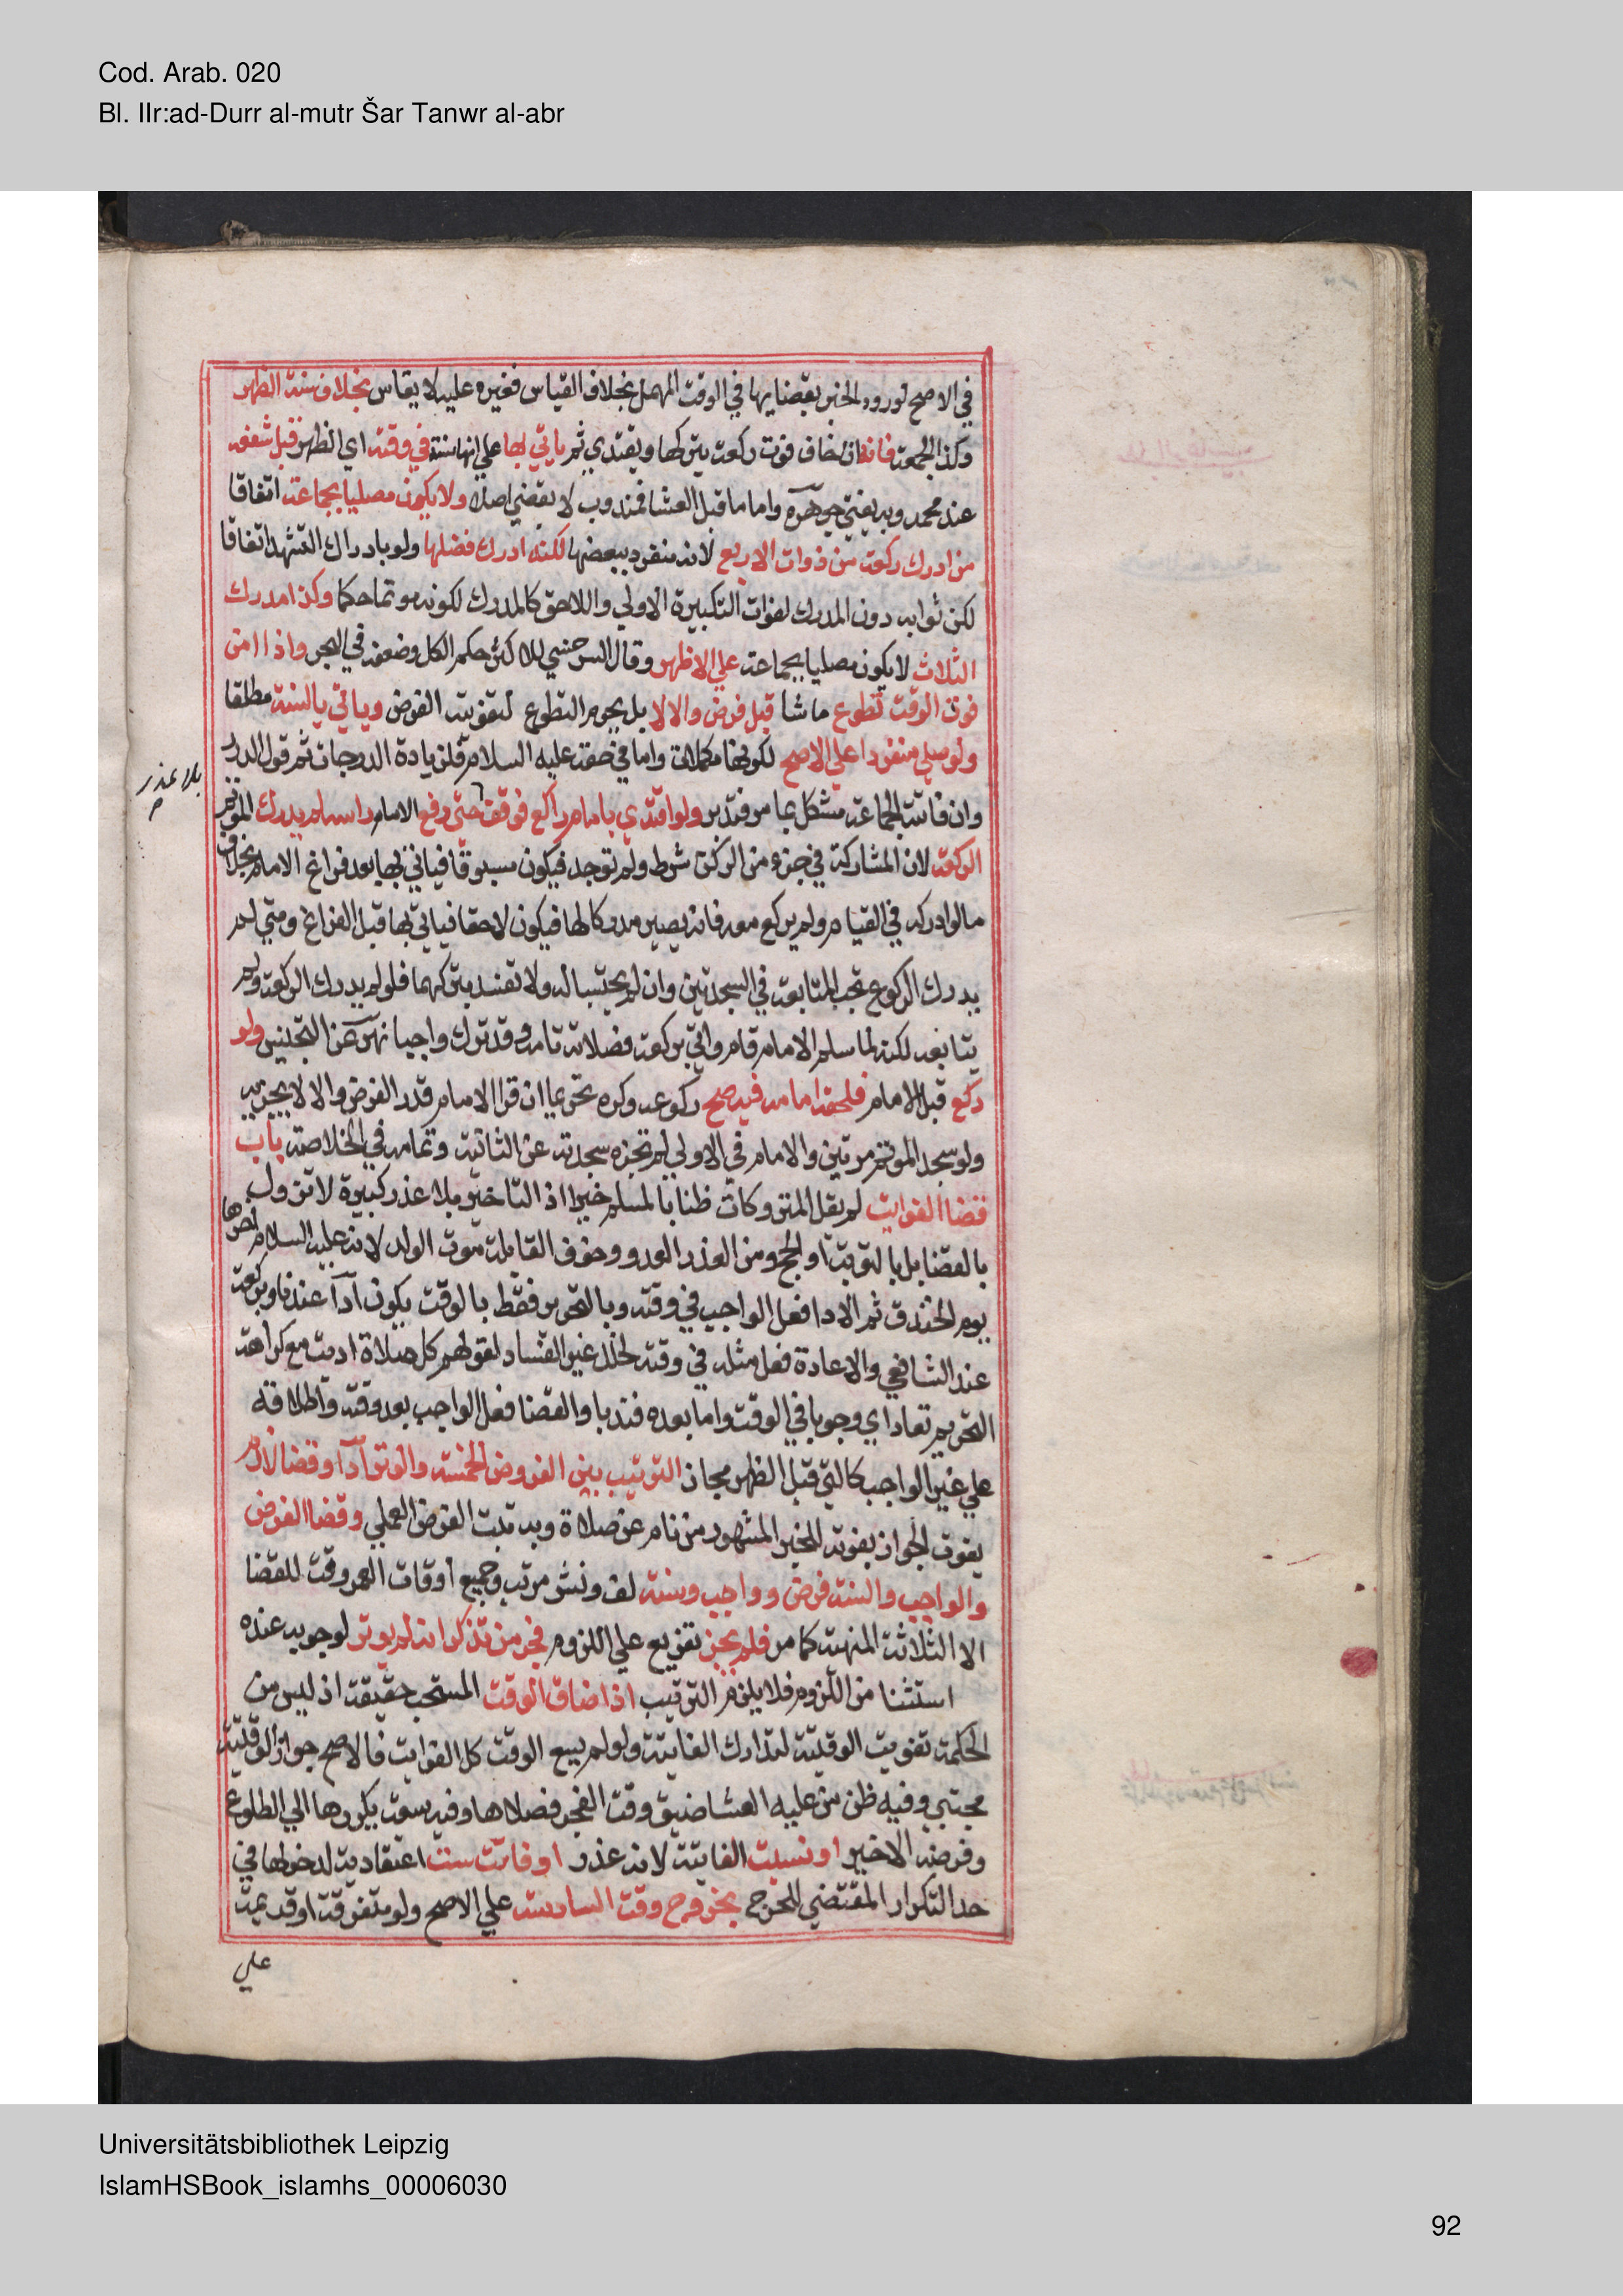 Cod. Arab. 020
Bl. IIr:ad-Durr al-mutr Šar Tanwr al-abr
في الاصح لورود الخبر بقضايها في الوقت المهمل بخلاف القياس فغيره عليه لا يقاس بخلاف سنة الظهر
وكذا الجمعة فانه ان خاف فوت ركعة يتركها ويقتدي ثم ياتي بها علي انها سنة في وقته اي الظهر قبل شفعه
عند محمد وبه يفتي جوهرة واما ما قبل العشا فمندوب لا يقضي اصلا ولا يكون مصليا بجماعة اتفاقا
من ادرك ركعة من ذوات الاربع لانه منفرد ببعضها لكنه ادرك فضلها ولو بادراك التشهد اتفاقا
لكن ثوابه دون المدرك لفوات التكبيرة الاولي واللاحق كالمدرك لكونه موتما حكما وكذا مدرك
الثلاث لا يكون مصليا بجماعة علي الاظهر وقال السرخسي للاكثر حكم الكل وضعفه في البحر واذا امن
فوت الوقت تطوع ما شا قبل فرض والا لا بل يحرم التطوع لتفويت الفرض وياتي بالسنة مطلقا
ولو صلي منفردا علي الاصح لكونها مكملات واما في حقه عليه السلام فلزيادة الدرجات ثم قول الدرر
بلا عذر
وان فاتته الجماعة مشكل بما مر فتدبر ولو اقتدي بامام راكع فوقف حتي رفع الامام راسه لم يدرك الموتم
الركعة لان المشاركة في جزء من الركن شرط ولم توجد فيكون مسبوقا فياتي بها بعد فراغ الامام بخلاف
ما لو ادركه في القيام ولم يركع معه فانه يصير مدركا لها فيكون لاحقا فياتي بها قبل الفراغ ومتي لم
يدرك الركوع تجب المتابعة في السجدتين وان لم يحتسبا له ولا تفسد بتركهما فلو لم يدرك الركعة ولم
يتابعه لكنه لما سلم الامام قام واتي بركعة فصلاته تامة وقد ترك واجبا نهر عن التجنيس ولو
ركع قبل الامام فلحقه امامه فيه صح ركوعه وكره تحريما ان قرا الامام قدر الفرض والا لا يجزيه
ولو سجد الموتم مرتين والامام في الاولي لم تجزه سجدته عن الثانية وتمامه في الخلاصة باب
قضا الفوايت لم يقل المتروكات ظنا بالمسلم خيرا اذ التاخير بلا عذر كبيرة لا تزول
بالقضا بل بالتوبة او الحج ومن العذر العدو وخوف القابلة موت الولد لانه عليه السلام اخرها
يوم الخندق ثم الادا فعل الواجب في وقته وبالتحريم فقط بالوقت يكون اداً عندنا وبركعة
عند الشافعي والاعادة فعل مثله في وقته لخلل غير الفساد لقولهم كل صلاة اديت مع كراهة
التحريم تعاد اي وجوبا في الوقت واما بعده فندبا والقضا فعل الواجب بعد وقته واطلاقه
علي غير الواجب كالتي قبل الظهر مجاز الترتيب بين الفروض الخمسة والوتر اداً وقضا لازم
يفوت الجواز بفوته للخبر المشهور من نام عن صلاة وبه يثبت الفرض العملي وقضا الفرض
والواجب والسنة فرض وواجب وسنة لف ونشر مرتب وجميع اوقات العمر وقت للقضا
الا الثلاثة المنهية كما مر فلم يجز تفريع علي اللزوم فجر من تذكر انه لم يوتر لوجوبه عنده
استثنا من اللزوم فلا يلزم الترتيب اذا ضاق الوقت المستحب حقيقة اذ ليس من
الحكمة تفويت الوقتية لتدارك الفايتة ولو لم يسع الوقت كل الفوايت فالاصح جواز الوقتية
مجتبي وفيه ظن من عليه العشا ضيق وقت الفجر فصلاها وفيه سعة يكررها الي الطلوع
وفرضه الاخير او نسيت الفايتة لانه عذر او فاتت ست اعتقادية لدخولها في
حد التكرار المقتضي للحرج بخروج وقت السادسة علي الاصح ولو متفرقة او قديمة
علي
Universitätsbibliothek Leipzig
IslamHSBook_islamhs_00006030
92